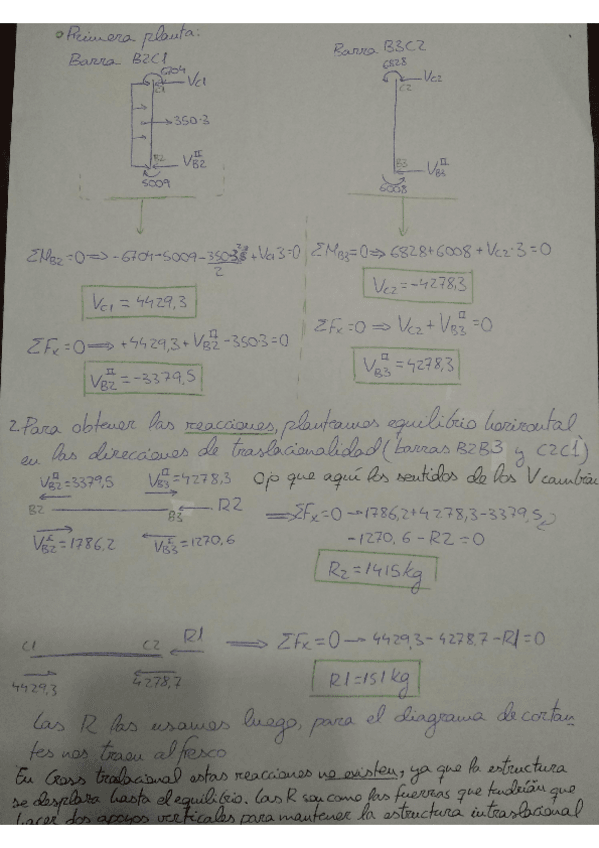 • Primera planta:
Barra B2C1
Barra B3C2
6704
C1
VC1
350·3
B2
V_B2^II
5009
6828
C2
VC2
B3
V_B3^II
6008
ΣM_B2=0 ⟹ -6704-5009- + VC1 3=0
2
VC1 = 4429,3
ΣFx=0 ⟹ +4429,3+V_B2^II -350·3=0
V_B2^II = -3379,5
ΣM_B3=0 ⟹ 6828+6008+VC2·3=0
VC2=-4278,3
ΣFx=0 ⟹ VC2+V_B3^II=0
V_B3^II = 4278,3
2. Para obtener las reacciones, planteamos equilibrio horizontal
en las direcciones de traslacionalidad (barras B2B3 y C2C1)
V_B2^II=3379,5 V_B3^II=4278,3 Ojo que aquí los sentidos de los V cambian
B2 B3 R2 ⟹ ΣFx=0 → 1786,2+4278,3-3379,5
V_B2^I=1786,2 V_B3^I=1270,6 -1270,6-R2=0
R2=1415kg
C1 C2 R1 ⟹ ΣFx=0 → 4429,3-4278,7-R1=0
4429,3 4278,7
R1=151kg
Las R las usamos luego, para el diagrama de cortan-
tes nos traen al fresco
En Cross traslacional estas reacciones no existen, ya que la estructura
se desplaza hasta el equilibrio. Las R son como las fuerzas que tendrían que
hacer dos apoyos verticales para mantener la estructura intraslacional